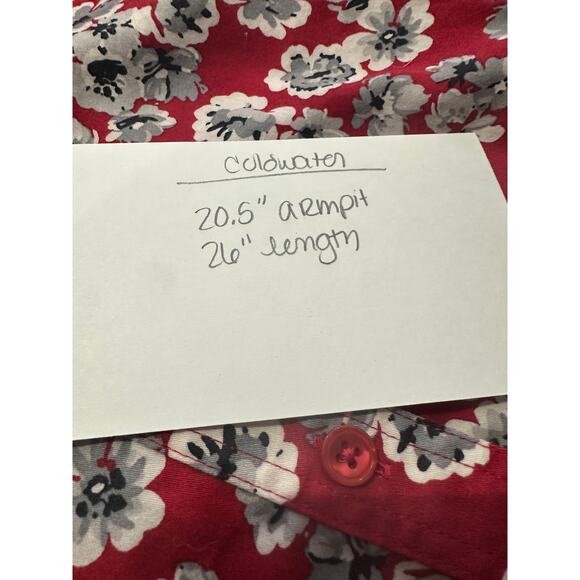 Coldwater
20.5" armpit
26" length